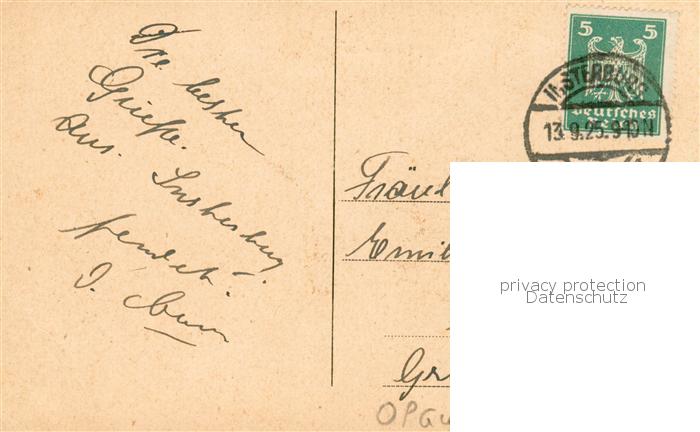 Die besten
Grüße.
Aus. Insterburg.
sendet.
5 5
Deutsches
INSTERBURG
13.9.25.9-10N
Fräul
Emil
Gr
OPG
privacy protection
Datenschutz